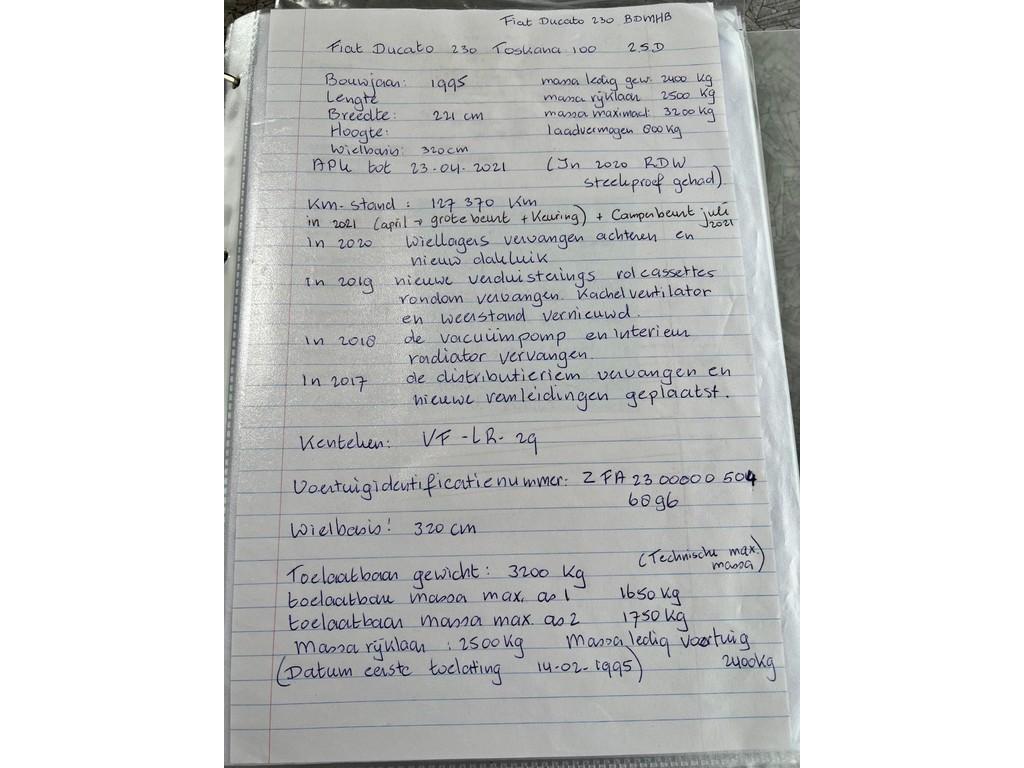 Fiat Ducato 230 BDMHB
Fiat Ducato 230 Toskana 100 2.5D
Bouwjaar: 1995 massa ledig gew. 2400 Kg
Lengte massa rijklaar 2500 Kg
Breedte: 221 cm massa maximaal: 3200 Kg
Hoogte: laadvermogen 600 Kg
Wielbasis: 320 cm
APK tot 23-04-2021 (In 2020 RDW
steekproef gehad)
Km-stand: 127 370 Km
in 2021 (april → grote beurt + Keuring) + Camperbeurt juli 2021
In 2020 Wiellagers vervangen achteren en
nieuw dakluik
In 2019 nieuwe verduisterings rolcassettes
rondom vervangen. Kachelventilator
en weerstand vernieuwd.
In 2018 de vacuümpomp en interieur
radiator vervangen.
In 2017 de distributieriem vervangen en
nieuwe remleidingen geplaatst.
Kenteken: VF-LR-29
Voertuigidentificatienummer: ZFA 23 00000 504
6896
Wielbasis! 320 cm
(Technische max. massa)
Toelaatbaar gewicht: 3200 Kg
toelaatbare massa max. as 1 1650 Kg
toelaatbaar massa max. as 2 1750 Kg
Massa rijklaar: 2500 Kg Massa ledig voertuig
(Datum eerste toelatting 14-02-1995) 2400 Kg